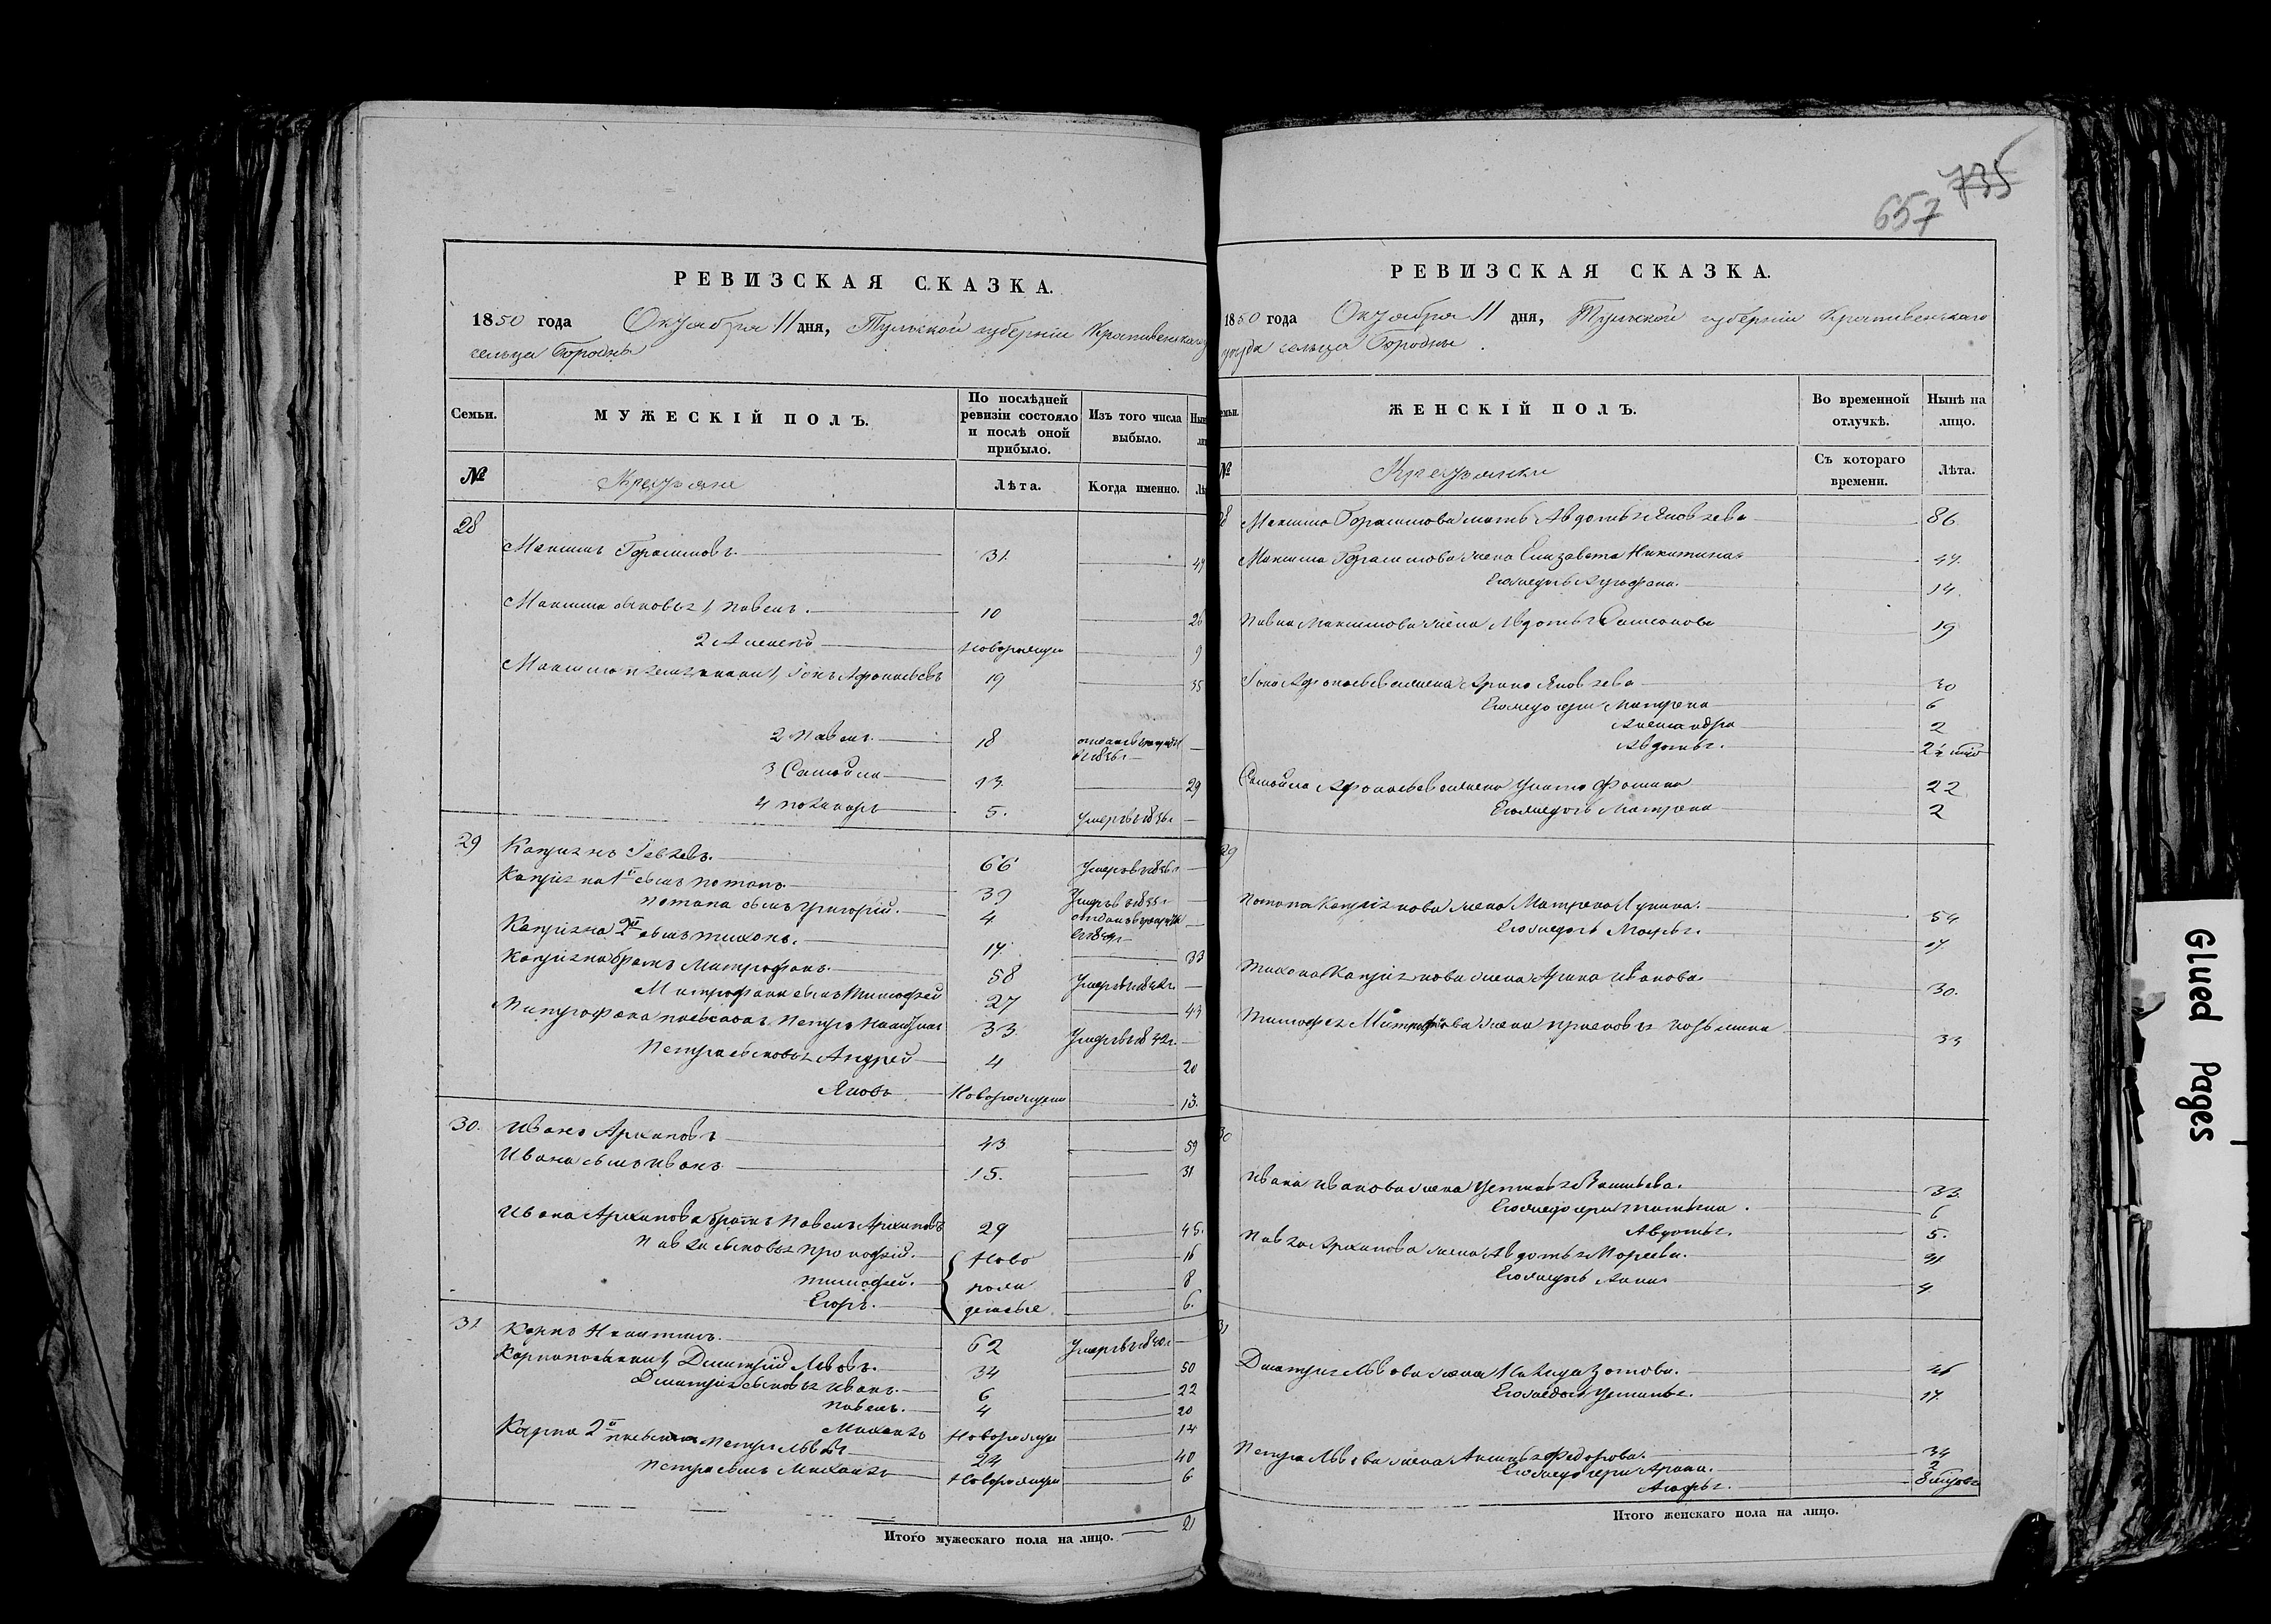 РЕВИЗСКАЯ СКАЗКА.
1850 года Октября 11 дня, Тульской губернiи Крапивенскаго
сельца Бородны
Семьи.
МУЖЕСКIЙ ПОЛЪ.
По послѣдней
ревизiи состояло
и послѣ оной
прибыло.
Изъ того числа
выбыло.
№
Крестьяне
Лѣта.
Когда именно.
28
Максимъ Герасимовъ. 31. 47
Максима сыновья 1, Павелъ. 10 26
2 Алексей новорожден 9
Максима племянники 1, Iонъ Афонасьевъ 19 35
2 Павелъ. 18 отданъ в рекруты
в 1836 г
3 Самойла 13. 29
4 5. умеръ в 1836 г
29
Iевлевъ. 66 умеръ в 1836 г
1й сынъ Потапъ. 39 умеръ в 1835 г
Потапа сынъ Григорiй. 4 отданъ в рекруты
2й сынъ Тихонъ. 17. 33
братъ Митрофанъ. 58 умеръ в 1842 г.
Митрофана сынъ Тимофей 27 43
Митрофана Петръ 33. умеръ в 1842 г.
Петра сыновья Андрей 4 20
Яковъ Новорожден 13.
30.
Иванъ Архиповъ 43 59
Ивана сынъ Иванъ 15. 31
Ивана Архипова братъ Павелъ Архиповъ 29 45.
Павла сыновья Прокофiй. Ново 16
Тимофей. рож 8
Егоръ. денные 6.
31
Карпъ Никитинъ. 62 умеръ в 1840 г
Карпа племянники 1, Дмитрiй Львовъ. 34 50
Дмитрiя сыновья Иванъ. 6 22
Павелъ. 4 20
Михайла Новорожден 14
Карпа 2й племянникъ Петръ Львовъ 24 40
Петра сынъ Михайла Новорожден 6
Итого мужескаго пола на лицо. 21
735
657
РЕВИЗСКАЯ СКАЗКА.
1850 года Октября 11 дня, Тульской губернiи Крапивенскаго
уезда сельца Бородны.
ЖЕНСКIЙ ПОЛЪ.
Во временной
отлучкѣ.
Нынѣ на
лицо.
№
Крестьянки
Съ котораго
времени.
Лѣта.
Максима Герасимова мать Авдотья Яковлева 86
Максима Герасимова жена Елизавета Никитина 47.
Ево же дочь 14.
Павла Максимова жена Авдотья 19
Iона Афонасьева жена Арина Яковлева 30
Ево же дочери Матрена 6
Александра 2
Авдотья. 2
Самойла Афонасьева жена Фомина 22
Ево же дочь Матрена 2
29
Потапа жена Матрена Лукина. 54
Ево же дочь Марья. 17.
Тихона жена Арина Иванова. 30.
Тимофея Митрофанова жена Прасковья Козьмина 33
30
Ивана Иванова жена Устинья Васильева. 33.
Ево же дочери Татьяна. 6
Авдотья. 5.
Павла Архипова жена Авдотья
Ево же дочь Анна 4
31
Дмитрiя Львова жена Зотова. 46
Ево же дочь Устинья. 17.
Петра Львова жена Аксинья Федорова. 34
Ево же дочери Арина. 2
Итого женскаго пола на лицо.
Glued Pages